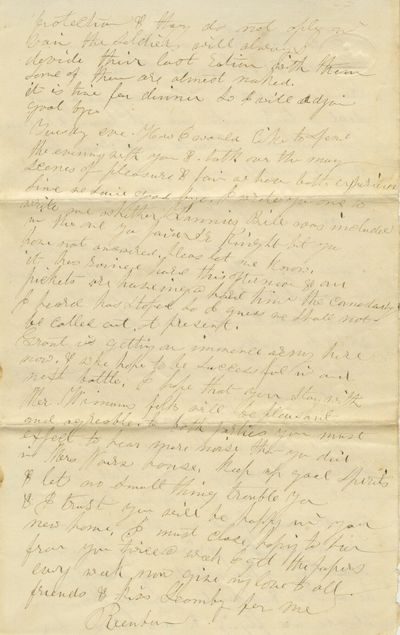 protection & they do not apply in
vain the soldiers will always
devide their last ration with them
some of them are almost naked.
it is time for dinner so I will adjoin
good bye
Tuesday eve How I would like to spend
the evening with you & talk over the many
scenes of pleasure & pain we have both experienced
since we
write me whether Bill was included
in the
have not answered please let me know.
it has rained hard this afternoon & our
pickets are having a hard time the canonading
I heard has stoped so I guess we shall not
be called out at present.
Grant is getting an immence army here
now, & who hope to be successful in our
next battle. I hope that your stay with
Mr. folks will be pleasant
and agreeable to both parties you must
expect to hear more noise than you did
in Mrs. house. Keep up good spirits
& let no small thing trouble you
& I trust you will be happy in your
new home. I must close hoping to hear
from you twice a week & get the papers
every week now give my love to all
friends & kiss for me
Reuben